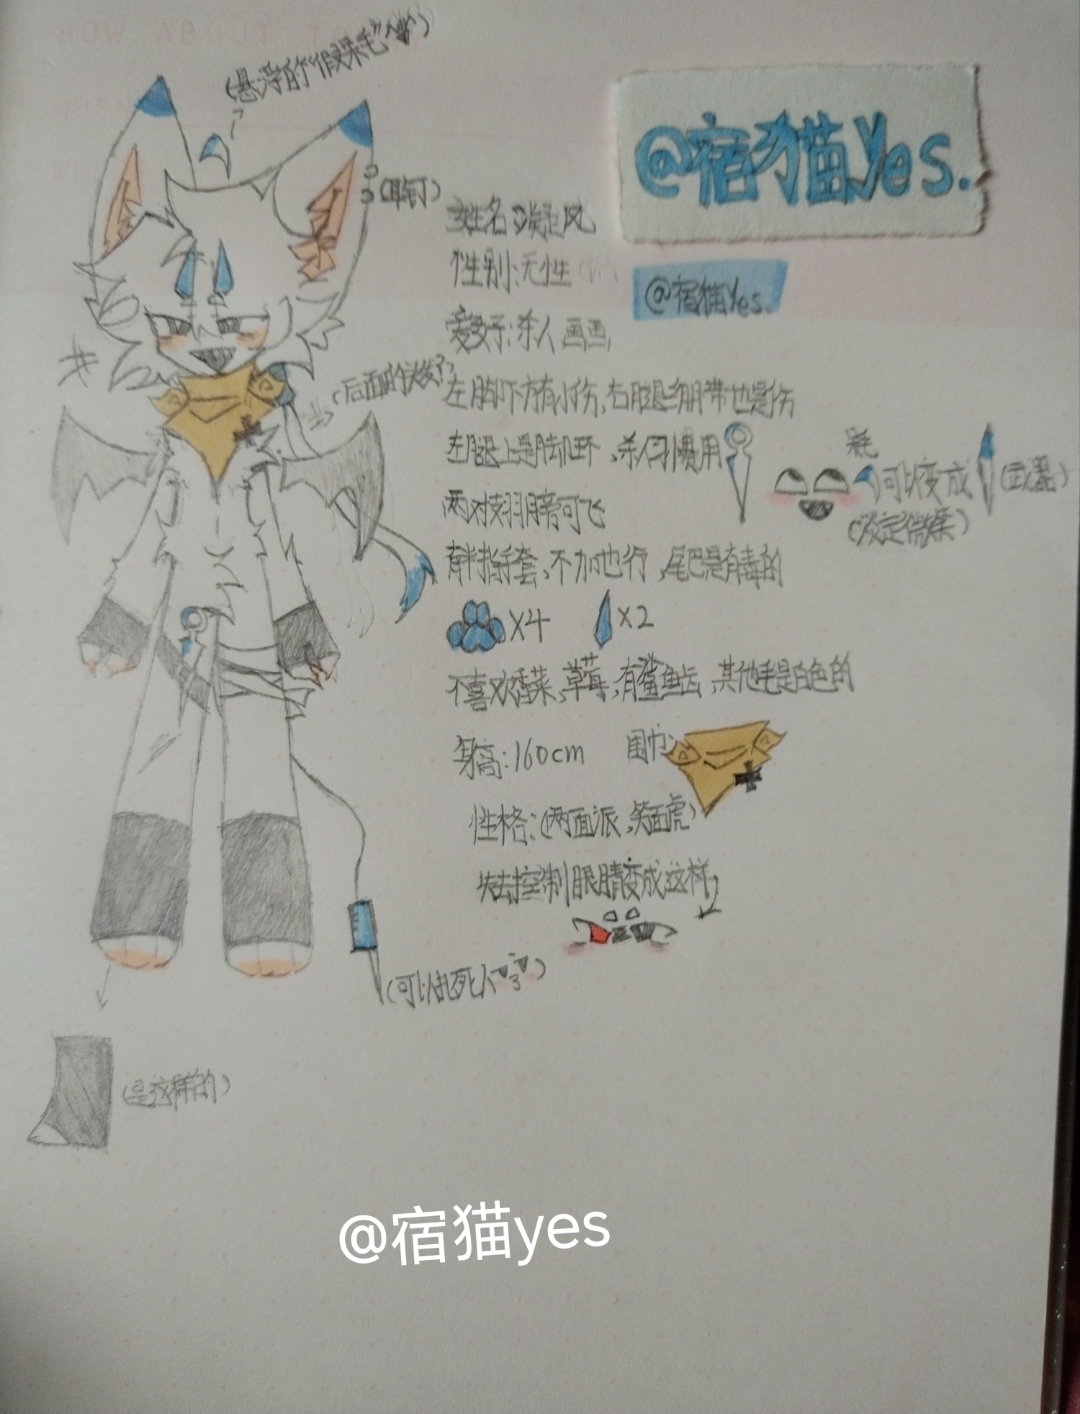 (悬浮的"假呆毛")
@宿猫Yes.
(耳钉)
姓名:凝风
性别:无性
@宿猫Yes.
爱好:杀人 画画
(后面的头发)
左脚下方有小伤,右腿绷带也是伤
左腿上是腿环,杀人习惯用
呆毛
可以变成
(武器)
(淡定微笑)
两对翅膀可飞
有半指手套,不加也行,尾巴是有毒的
X4 X2
不喜欢香菜,草莓,有鲨鱼齿,其他毛是白色的
身高:160cm 围巾:
性格:(两面派,笑面虎)
失去控制眼睛变成这样
(可以扎死人)
(是这样的)
@宿猫yes